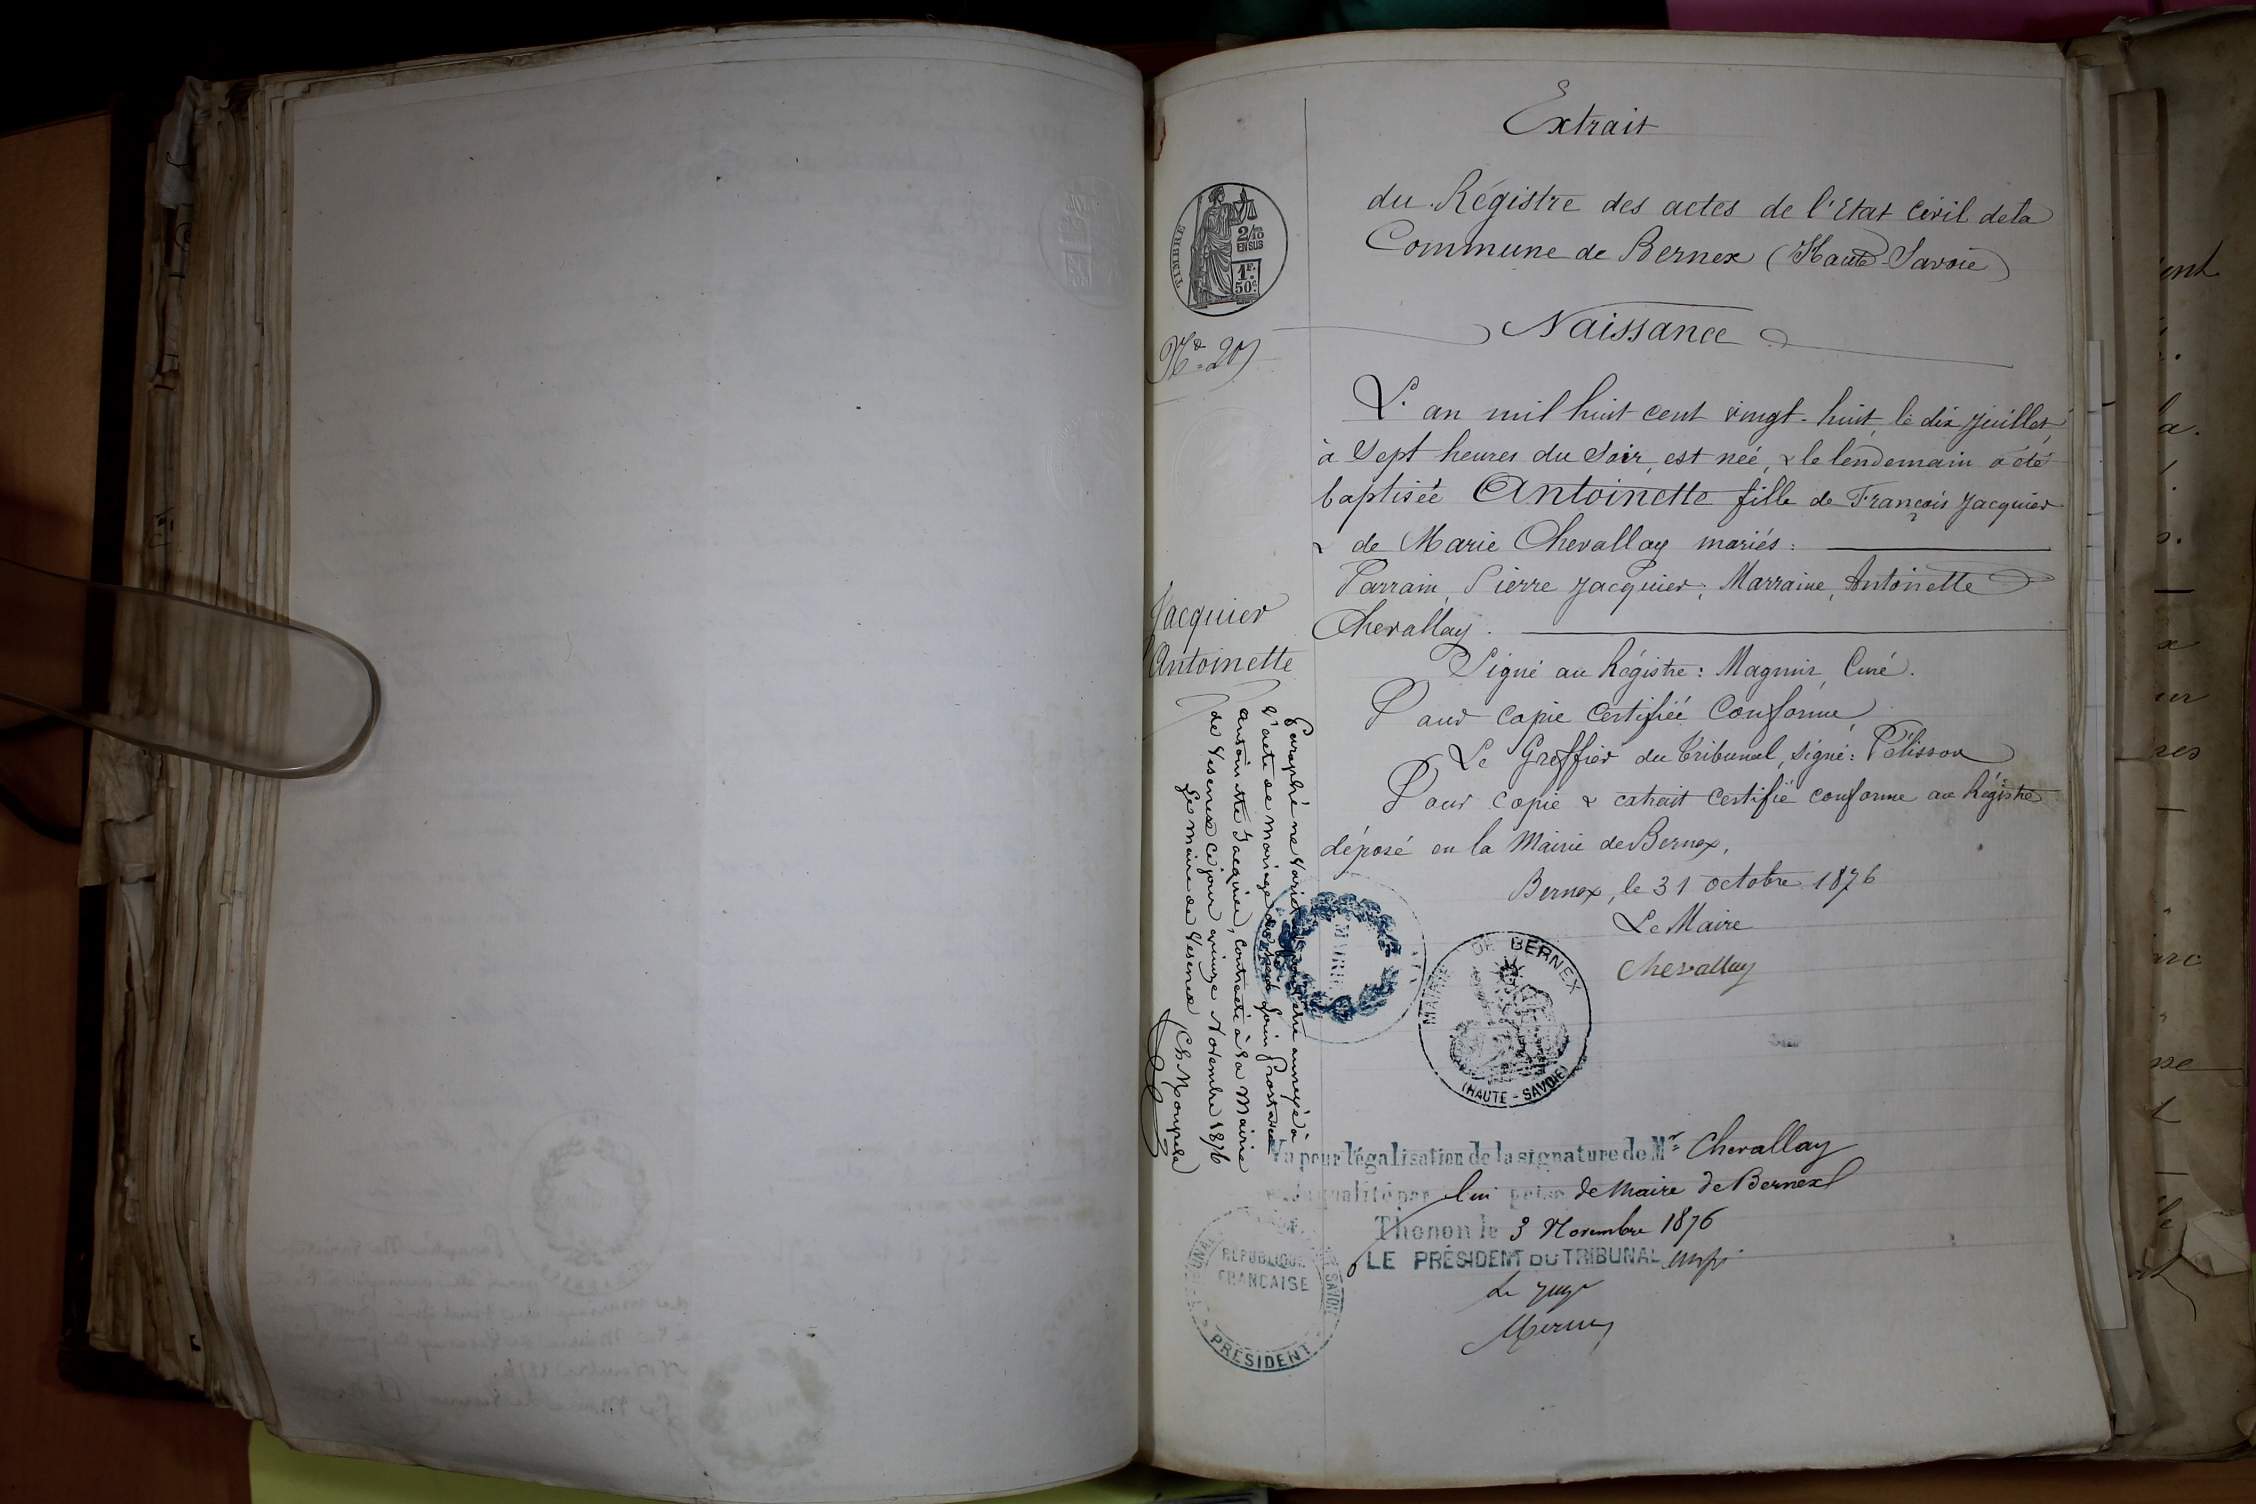 Extrait
du Régistre des actes de l'Etat Civil de la
Commune de Bernex (Haute-Savoie)
Naissance
TIMBRE
2/10
EN SUS
1F.
50c.
No 20
L'an mil huit cent vingt-huit, le dix juillet
à Sept heures du Soir, est née, & le lendemain a été
baptisée Antoinette fille de François Jacquier
& de Marie Chevallay mariés:
Parrain, Pierre Jacquier; Marraine, Antoinette
Chevallay.
Jacquier
Antoinette
Signé au Régistre: Magnin, Curé.
Pour Copie Certifiée Conforme
Le Greffier du Tribunal, signé: Pélisson
Pour Copie & extrait certifié conforme au Régistre
déposé en la Mairie de Bernex,
Bernex, le 31 octobre 1876
Le Maire
Chevallay
Paraphé ne Varietur pour être annexé à
l'acte de mariage de
Antoinette Jacquier, Contracté à la Mairie
de Vesenex ce jour quinze Novembre 1876
Le maire de Vesenex
MAIRIE
MAIRIE DE BERNEX
(HAUTE-SAVOIE)
Vu pour légalisation de la signature de Mr Chevallay
qualité par lui prise de Maire de Bernex
Thonon le 3 Novembre 1876
LE PRÉSIDENT DU TRIBUNAL
Le Juge
RÉPUBLIQUE
FRANÇAISE
PRÉSIDENT